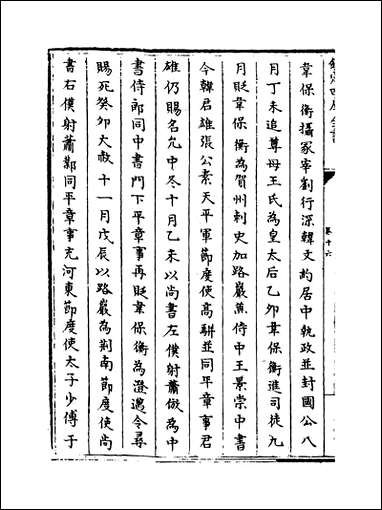 欽定四庫全書
卷十六
韋保衡攝冢宰劉行深韓文約居中執政並封國公八
月丁未追尊母王氏為皇太后乙卯韋保衡進司徒九
月貶韋保衡為賀州刺史加路巖蕳侍中王景崇中書
今韓君雄張公素天平軍節度使高駢並同平章事君
雄仍賜名允中冬十月乙未以尚書左僕射蕭倣為中
書侍郎同中書門下平章事再貶韋保衡為澄邁令尋
賜死癸卯大赦十一月戊辰以路巖為荆南節度使尚
書右僕射蕭鄴同平章事充河東節度使太子少傅于